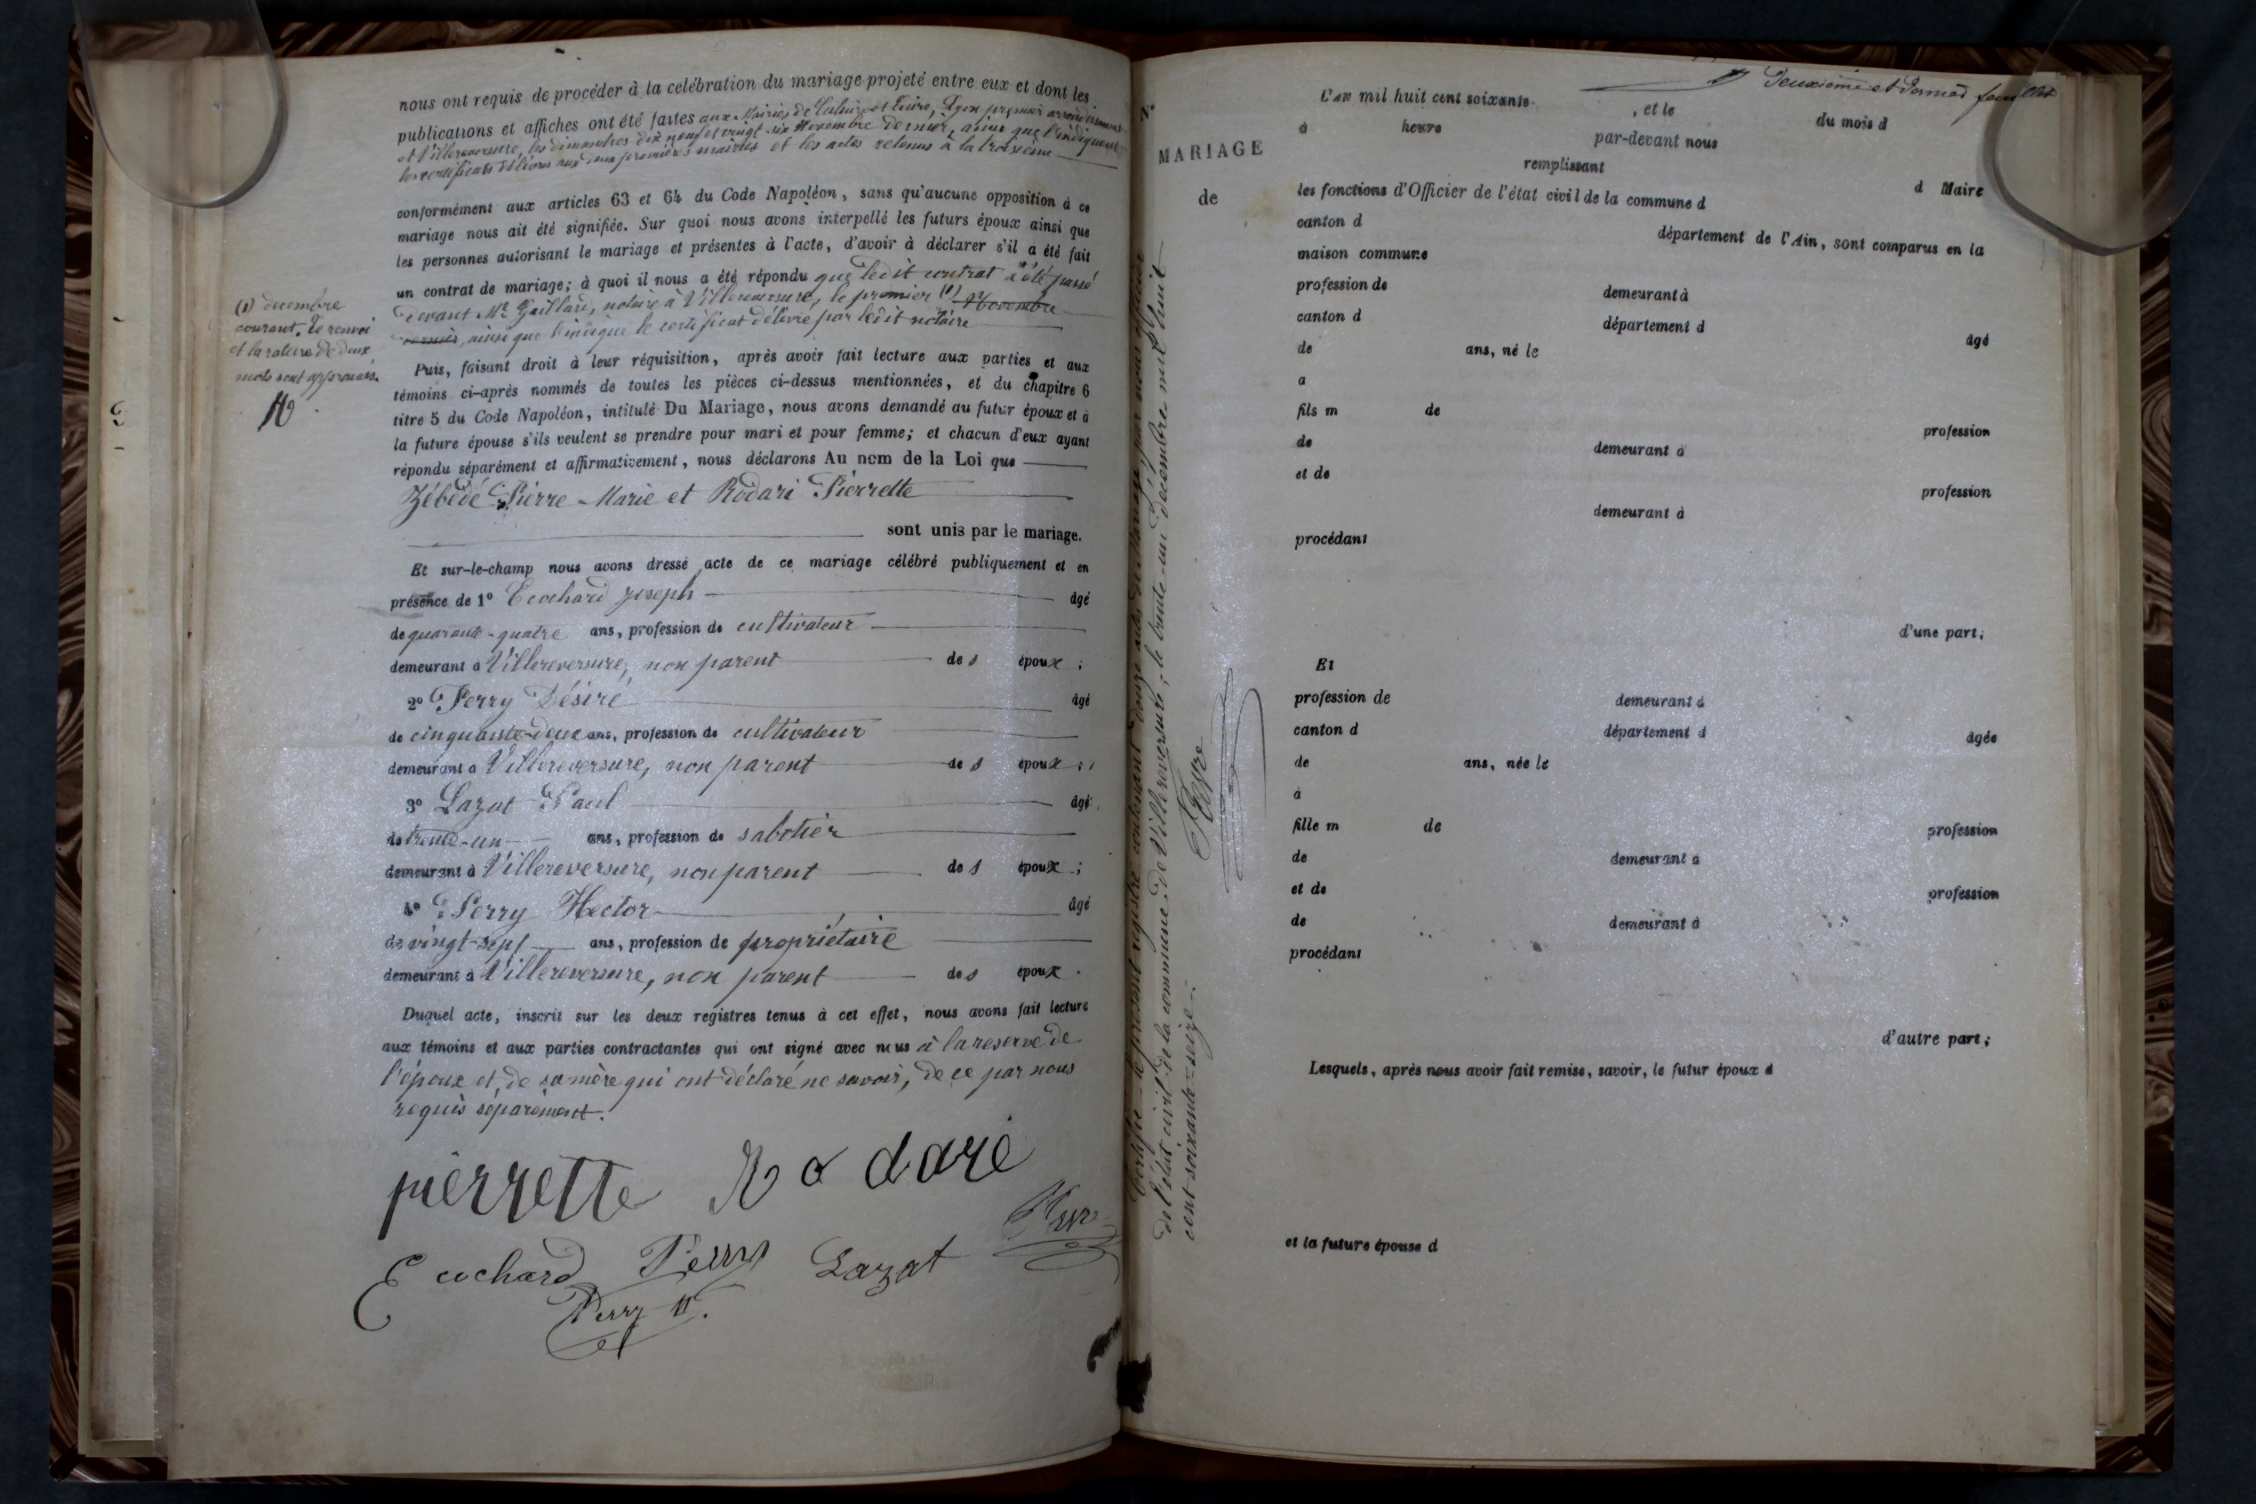 nous ont requis de procéder à la celébration du mariage projeté entre eux et dont les
publications et affiches ont été faites aux Mairies de Caluire et Cuire, Lyon premier arrondissement
et Villereversure, les dimanches dix neuf et vingt-six Novembre dernier, ainsi que l'indiquent
les certificats délivrés aux deux premières mairies et les actes retenus à la troisième
conformément aux articles 63 et 64 du Code Napoléon, sans qu'aucune opposition à ce
mariage nous ait été signifiée. Sur quoi nous avons interpellé les futurs époux ainsi que
les personnes autorisant le mariage et présentes à l'acte, d'avoir à déclarer s'il a été fait
un contrat de mariage; à quoi il nous a été répondu que ledit contrat a été passé
devant Me Gaillard, notaire à Villereversure, le premier (1) Novembre
dernier, ainsi que l'indique le certificat délivré par ledit notaire
(1) decembre
courant. Le renvoi
et la rature de deux
mots sont approuvés.
Puis, faisant droit à leur réquisition, après avoir fait lecture aux parties et aux
témoins ci-après nommés de toutes les pièces ci-dessus mentionnées, et du chapitre 6
titre 5 du Code Napoléon, intitulé Du Mariage, nous avons demandé au futur époux et à
la future épouse s'ils veulent se prendre pour mari et pour femme; et chacun d'eux ayant
répondu séparément et affirmativement, nous déclarons Au nom de la Loi que
Zébédé Pierre-Marie et Rodari Pierrette
sont unis par le mariage.
Et sur-le-champ nous avons dressé acte de ce mariage célébré publiquement et en
présence de 1º Ecochard Joseph âgé
de quarante-quatre ans, profession de cultivateur
demeurant à Villereversure, non parent des époux;
2º Perry Désiré âgé
de cinquante-deux ans, profession de cultivateur
demeurant à Villereversure, non parent des époux;
3º Lazat Paul âgé
de trente-un ans, profession de sabotier
demeurant à Villereversure, non parent des époux;
4º Perry Hector âgé
de vingt-sept ans, profession de propriétaire
demeurant à Villereversure, non parent des époux.
Duquel acte, inscrit sur les deux registres tenus à cet effet, nous avons fait lecture
aux témoins et aux parties contractantes qui ont signé avec nous à la reserve de
l'époux et de sa mère qui ont déclaré ne savoir, de ce par nous
requis séparément.
pierrette Rodari
Ecochard Perry Lazat
Perry H.
Certifié le présent registre contenant douze actes de Mariage, par nous officier
de l'état civil de la commune de Villereversure, le trente-un décembre mil huit
cent soixante-seize.
Deuxième et dernier feuillet
Nº
MARIAGE
de
L'an mil huit cent soixante , et le du mois d
à heure par-devant nous
remplissant
les fonctions d'Officier de l'état civil de la commune d d Maire
canton d département de l'Ain, sont comparus en la
maison commune
profession de demeurant à
canton d département d âgé
de ans, né le
a
fils m de profession
de demeurant à
et de profession
demeurant à
procédant
d'une part;
Et
profession de demeurant à
canton d département d âgée
de ans, née le
à
fille m de profession
de demeurant à
et de profession
de demeurant à
procédant
d'autre part;
Lesquels, après nous avoir fait remise, savoir, le futur époux d
et la future épouse d